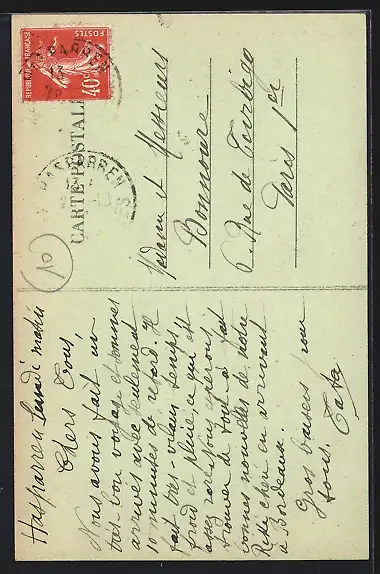 RÉPUBLIQUE FRANÇAISE
POSTES
40c
HASPARREN
HASPARREN
CARTE POSTALE
10
Madame et Messieurs
Bonnoure
6 Rue de Turbigo
Paris 1er
Hasparren Samedi matin
Chers tous,
Nous avons fait un
très bon voyage et sommes
arrivés avec seulement
10 minutes de retard. Il
fait très-vilain temps
froid et pluie, ce qui est
assez
trouver de tout à fait
bonnes nouvelles de notre
chérie en arrivant
à Bordeaux.
Gros baisers pour
tous.